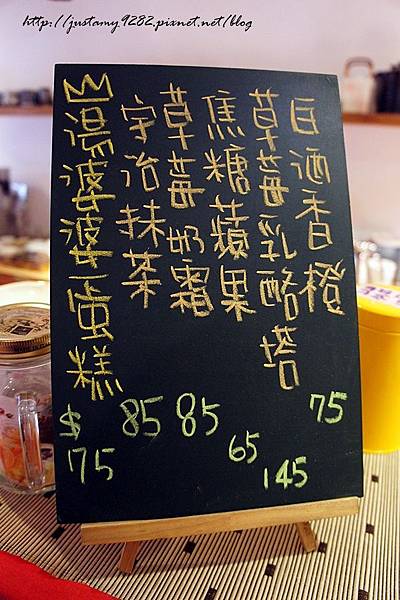 http://justamy9282.pixnet.net/blog
白酒香橙
75
草莓乳酪塔
145
焦糖蘋果
65
草莓奶霜
85
宇治抹茶
85
湯婆婆蛋糕
$75